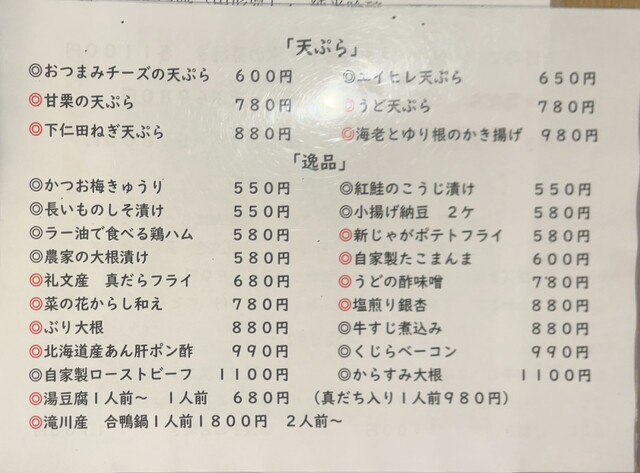 「天ぷら」
◎おつまみチーズの天ぷら 600円 ◎エイヒレ天ぷら 650円
◎甘栗の天ぷら 780円 ◎うど天ぷら 780円
◎下仁田ねぎ天ぷら 880円 ◎海老とゆり根のかき揚げ 980円
「逸品」
◎かつお梅きゅうり 550円 ◎紅鮭のこうじ漬け 550円
◎長いものしそ漬け 550円 ◎小揚げ納豆 2ケ 580円
◎ラー油で食べる鶏ハム 580円 ◎新じゃがポテトフライ 580円
◎農家の大根漬け 580円 ◎自家製たこまんま 600円
◎礼文産 真だらフライ 680円 ◎うどの酢味噌 780円
◎菜の花からし和え 780円 ◎塩煎り銀杏 880円
◎ぶり大根 880円 ◎牛すじ煮込み 880円
◎北海道産あん肝ポン酢 990円 ◎くじらベーコン 990円
◎自家製ローストビーフ 1100円 ◎からすみ大根 1100円
◎湯豆腐1人前～ 1人前 680円 (真だち入り1人前980円)
◎滝川産 合鴨鍋1人前1800円 2人前～